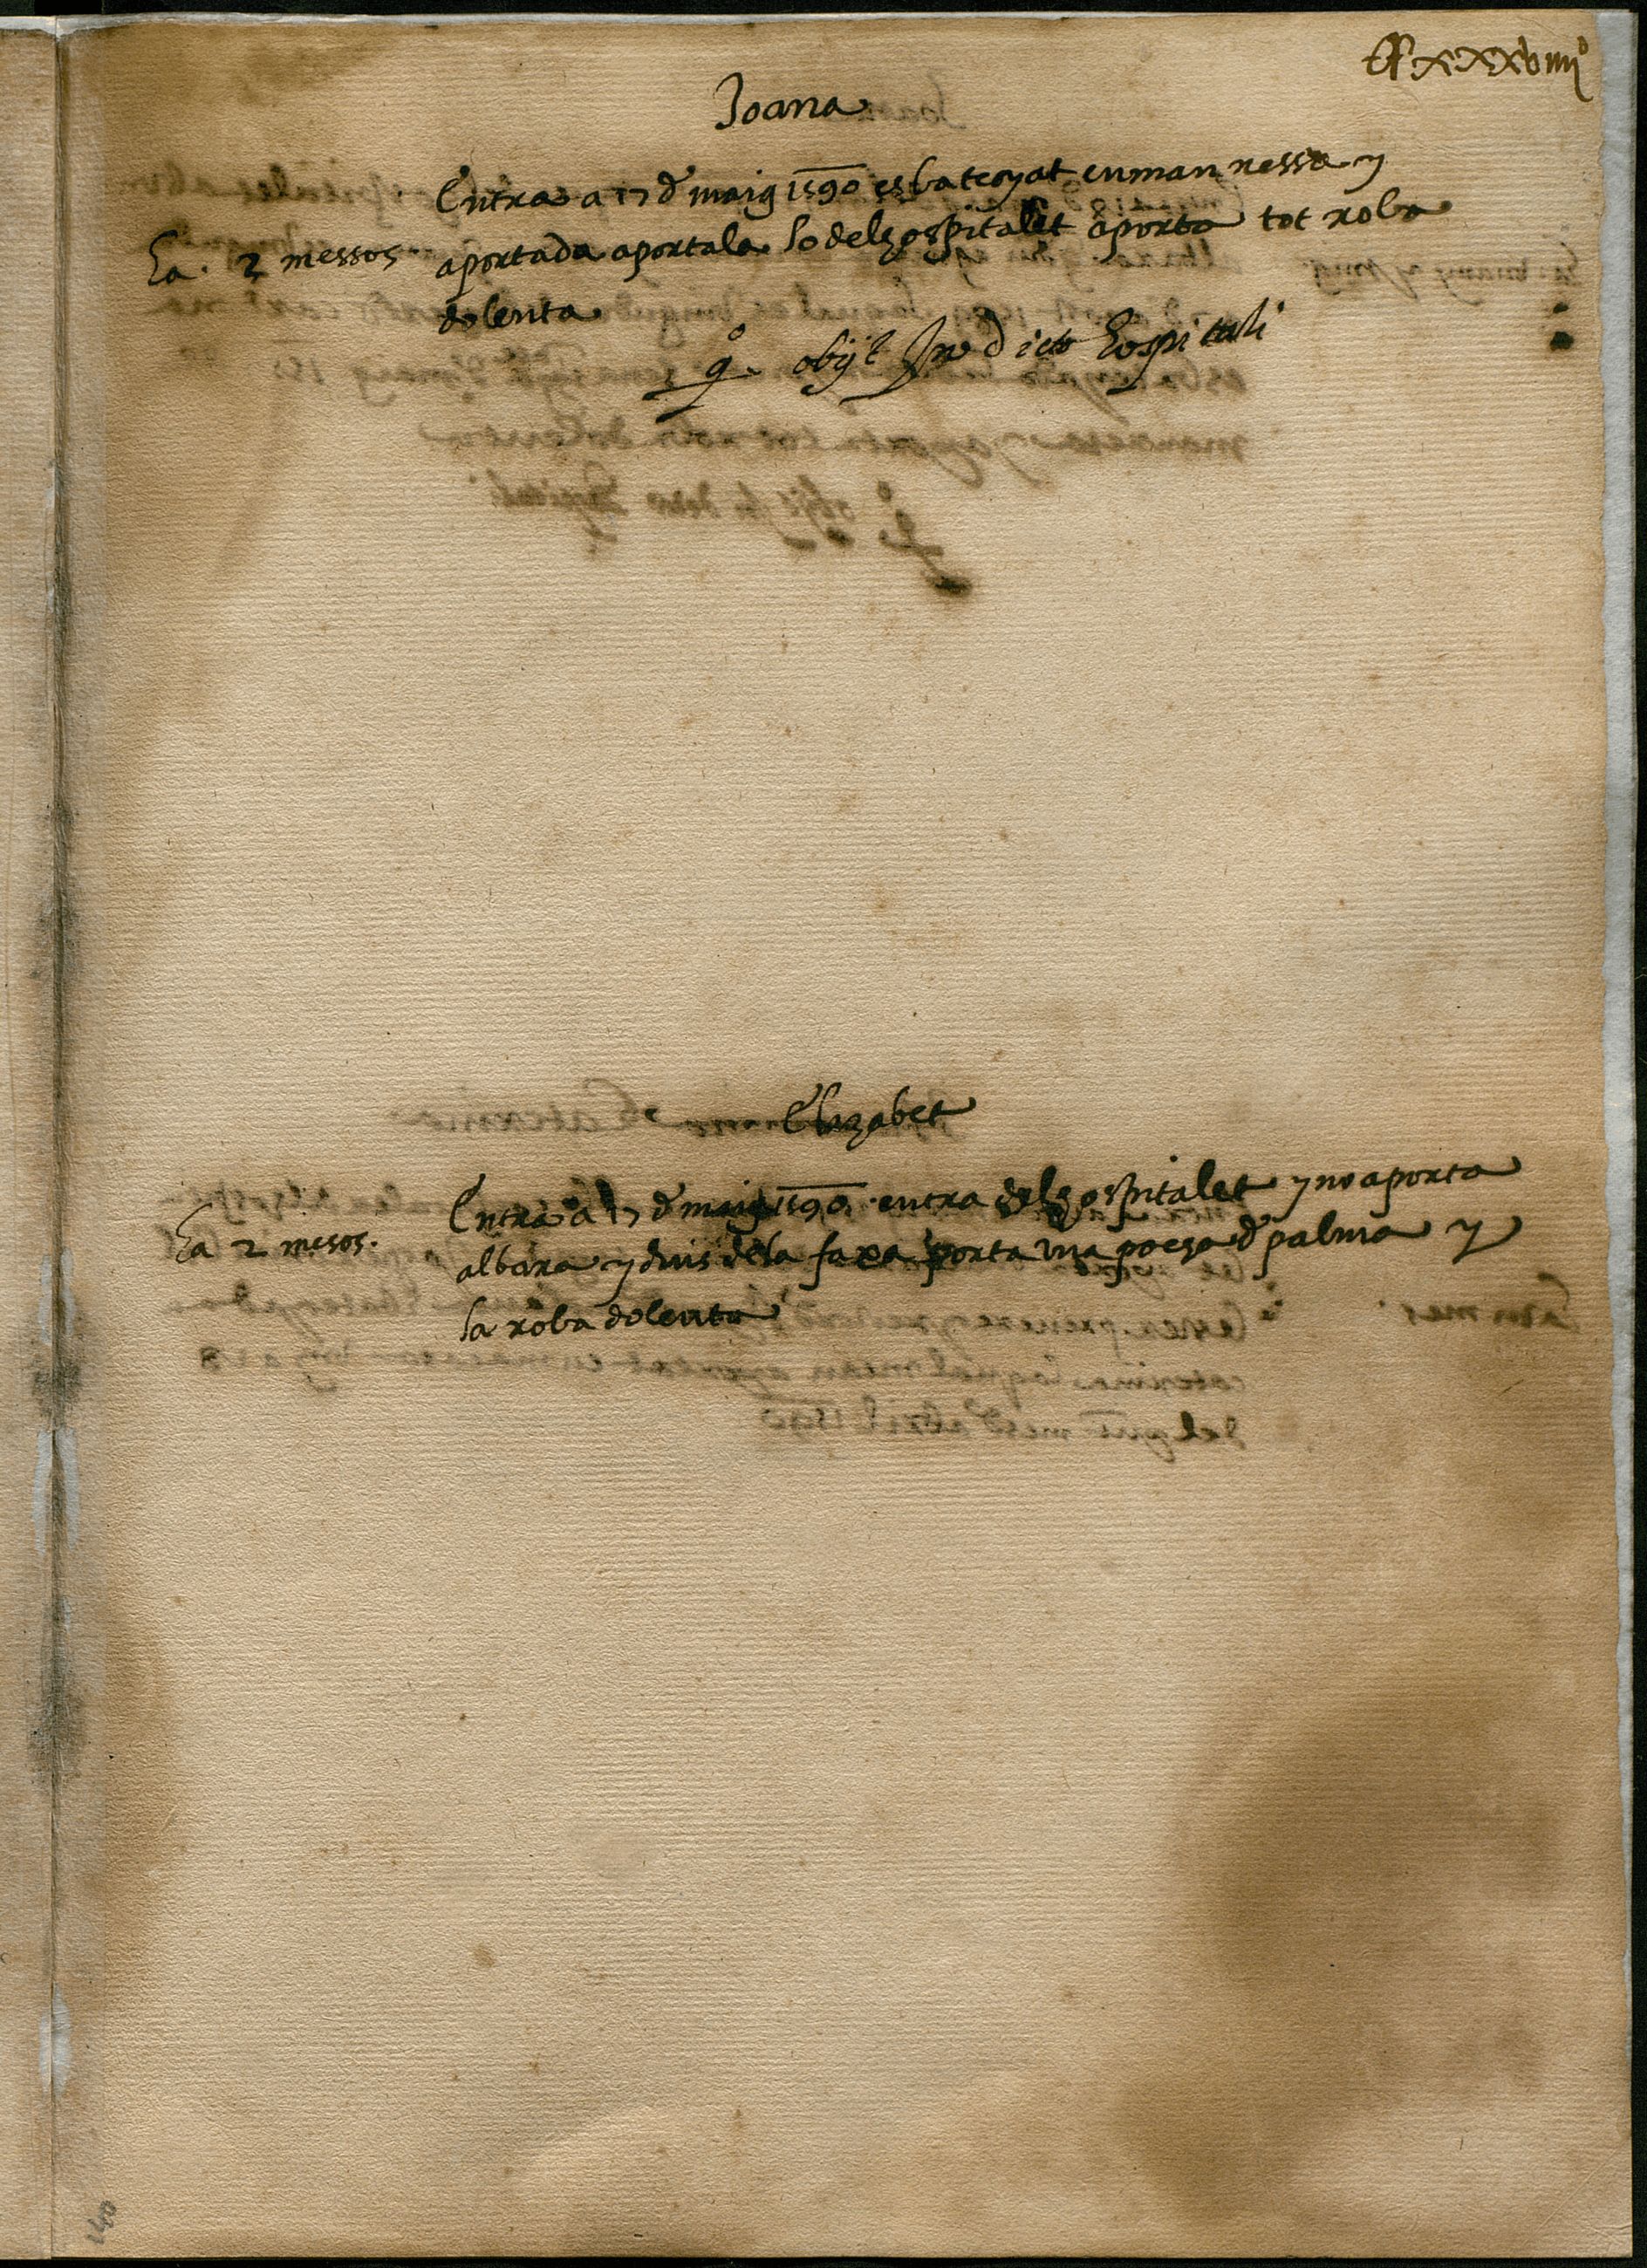 xxxbiiijº
Joana
Entra a 17 d maig 1590 es bateyat en man ressa y
ha 2 messos
aportada aportala lo dels ospitalet aporta tot roba
dolenta
qº obijt In dicto hospitali
Elizabet
Entra a 17 d maig 1590 entra dels ospitalet y no aporta
ha 2 mesos.
albara y dins dela faxa porta una poesa d palma y
la roba dolenta